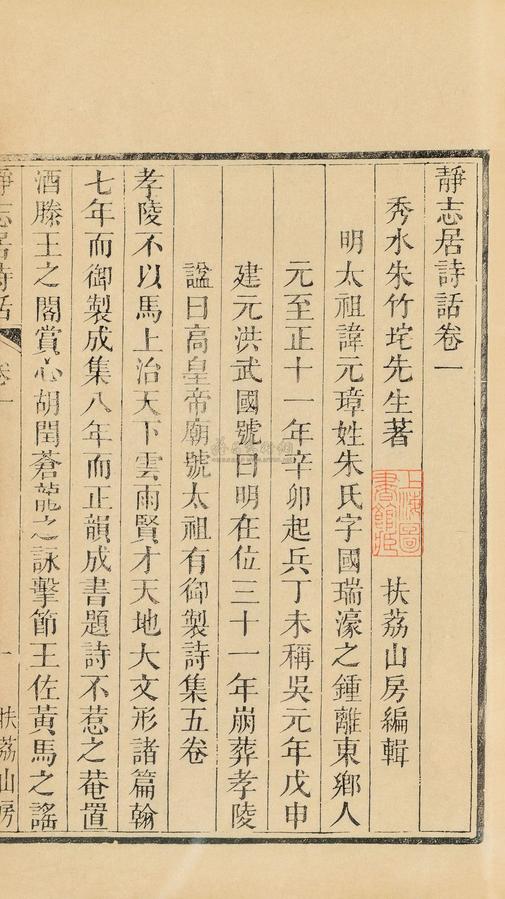 靜志居詩話卷一
秀水朱竹垞先生著 扶荔山房編輯
明太祖諱元璋姓朱氏字國瑞濠之鍾離東鄉人
元至正十一年辛卯起兵丁未稱吳元年戊申
建元洪武國號曰明在位三十一年崩葬孝陵
諡曰高皇帝廟號太祖有御製詩集五卷
孝陵不以馬上治天下雲雨賢才天地大文形諸篇翰
七年而御製成集八年而正韻成書題詩不惹之菴置
酒滕王之閣賞心胡閏蒼龍之詠擊節王佐黃馬之謠
靜志居詩話 卷一 一 扶荔山房
上海圖
書館藏